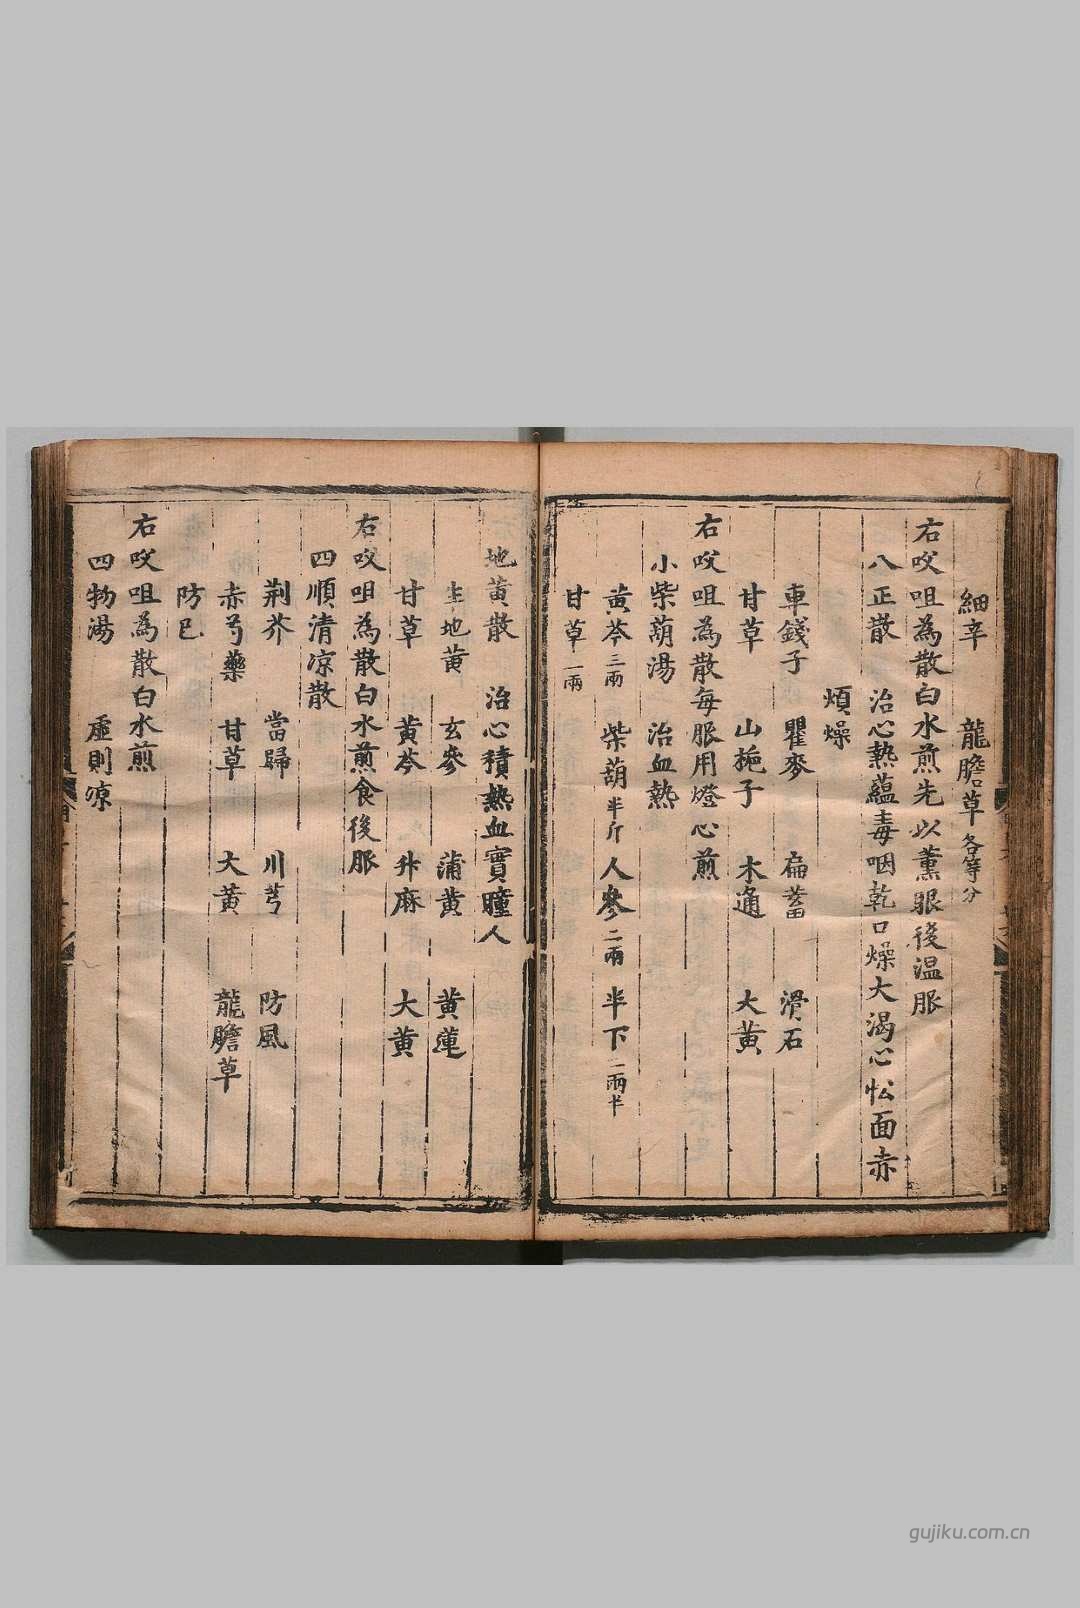 細辛 龍膽草各等分
右㕮咀為散白水煎先以薰眼後温服
八正散 治心熱蘊毒咽乾口燥大渴心忪面赤
煩燥
車錢子 瞿麥 扁蓄 滑石
甘草 山梔子 木通 大黄
右㕮咀為散每服用燈心煎
小柴葫湯 治血熱
黄芩三兩 柴葫半斤 人參二兩 半下二兩半
甘草一兩
地黄散 治心積熱血實瞳人
生地黄 玄參 蒲黄 黄蓮
甘草 黄芩 升麻 大黄
右㕮咀為散白水煎食後服
四順清凉散
荆芥 當歸 川芎 防風
赤芍藥 甘草 大黄 龍膽草
防巳
右㕮咀為散白水煎
四物湯 虛則凉
gujiku.com.cn